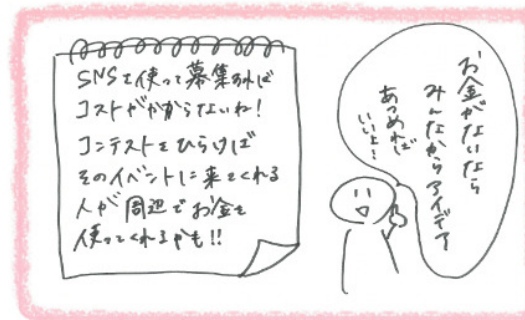 SNSを使って募集すれば
コストがかからないね!
コンテストをひらけば
そのイベントに来てくれる
人が周辺でお金を
使ってくれるかも!!
お金がないなら
みんなからアイデア
あつめれば
いいよ…